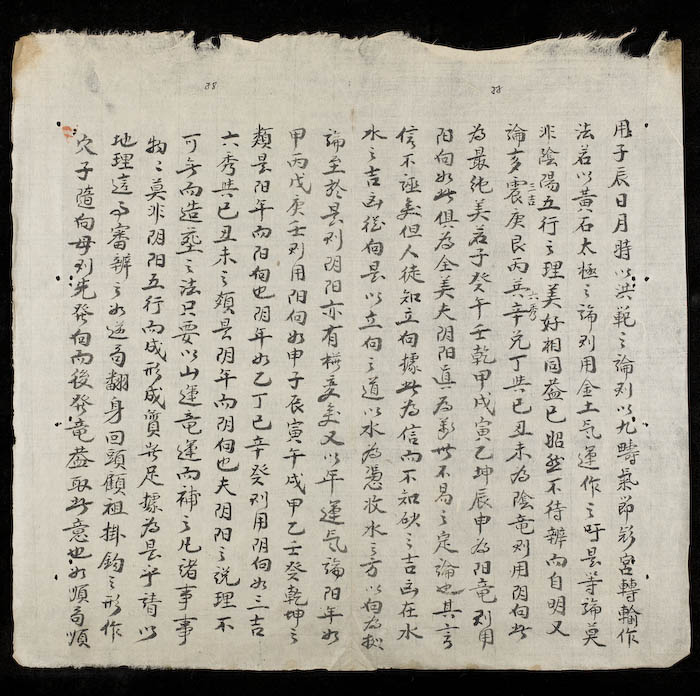 用子辰日月時以洪範之論則以九疇氣節彩宮轉輸作
法若以黃石太極之論則用金土氣運作之吁是等論莫
非陰陽五行之理美好相同葢已昭然不待辨而自明又
論多震庚艮丙兵辛兌丁與巳丑未為陰竜則用阴向此
三吉
六秀
為最純美若子癸午壬乾甲戌寅乙坤辰申為阳竜則用
阳向如此俱為全美夫阴阳真為萬世不易之定論也其言
信不誣矣但人徒知立向據此為信而不知砂之吉凶在水
水之吉凶從向是以立向之道以水為憑收水之方以向為
論至於是則阴阳亦有變矣又以年運氣論阳年如
甲丙戊庚壬則用阳向如申子辰寅午戌甲乙壬癸乾坤之
類是阳年而阳向也阴年如乙丁巳辛癸則用阴向如三吉
六秀與巳丑未之類是阴年而阴向也夫阴阳之說理不
可無而造葬之法只要以山運竜運而補之凡諸事事
物〻莫非阴阳五行而成形成質此足據為是乎請以
地理這審辨之如逆局翻身回頭顧祖掛鈎之形作
穴子隨向母則先發向而後發竜葢取此意也如順局順
88
88